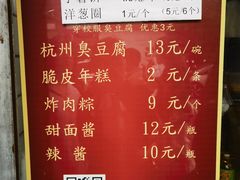 洋葱圈 1元/个 (5元6个)
穿校服臭豆腐 优惠3元
杭州臭豆腐 13元/碗
脆皮年糕 2元/条
炸肉粽 9元/个
甜面酱 12元/瓶
辣酱 10元/瓶